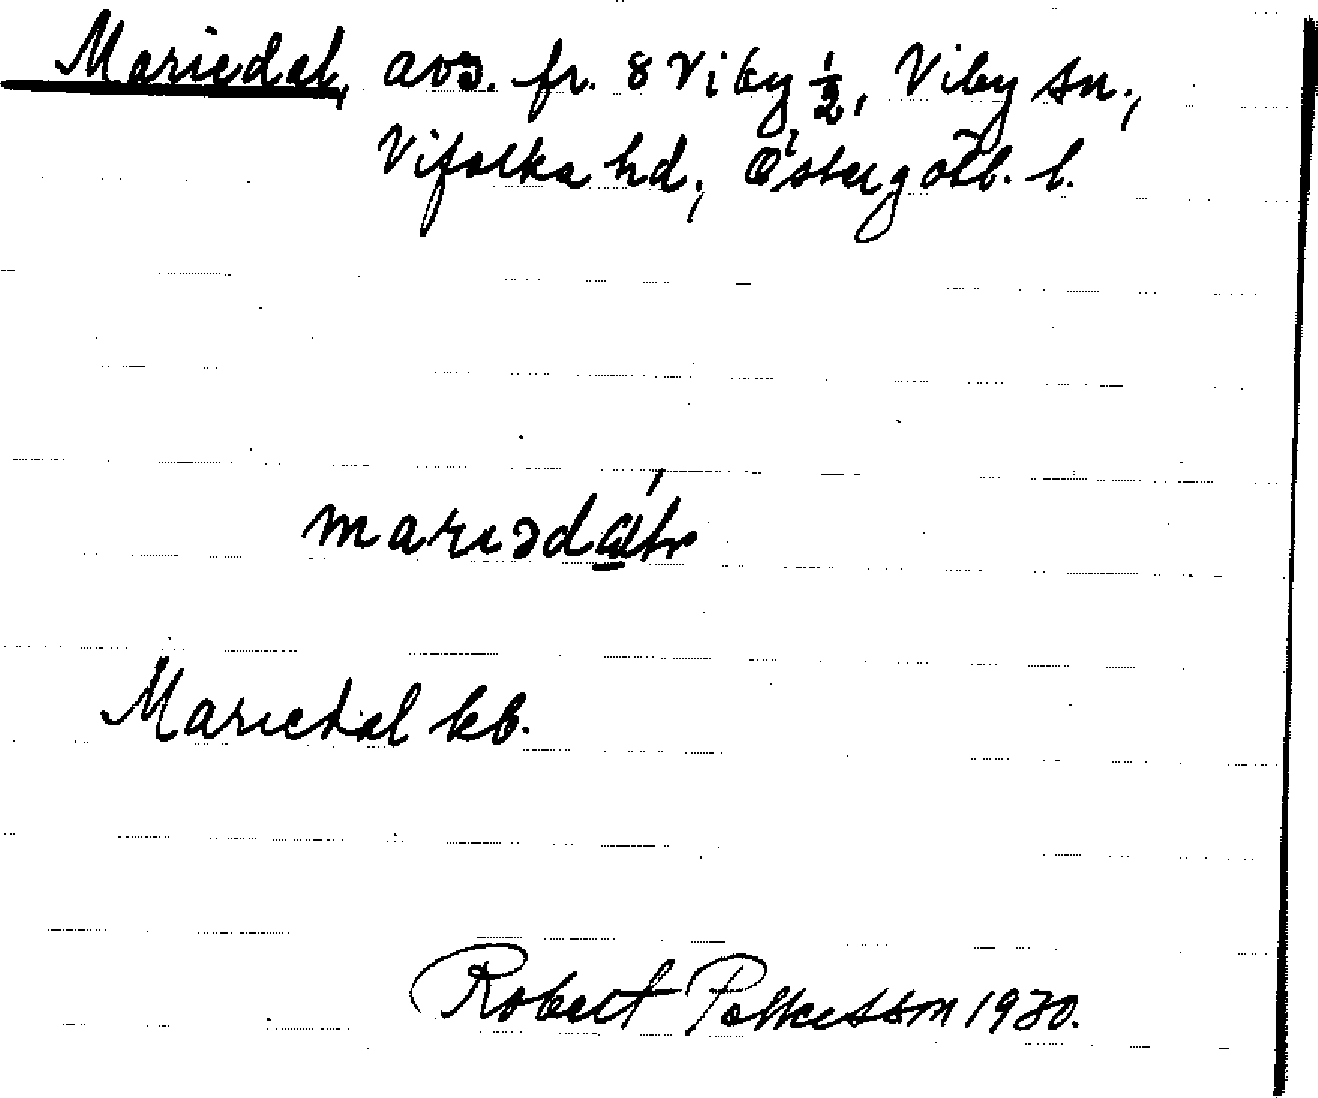 Mariedal, avs. fr. 8 Viby ½, Viby sn.,
Vifolka hd, Östergötl. l.
Mariedal kb.
Robert 1930.